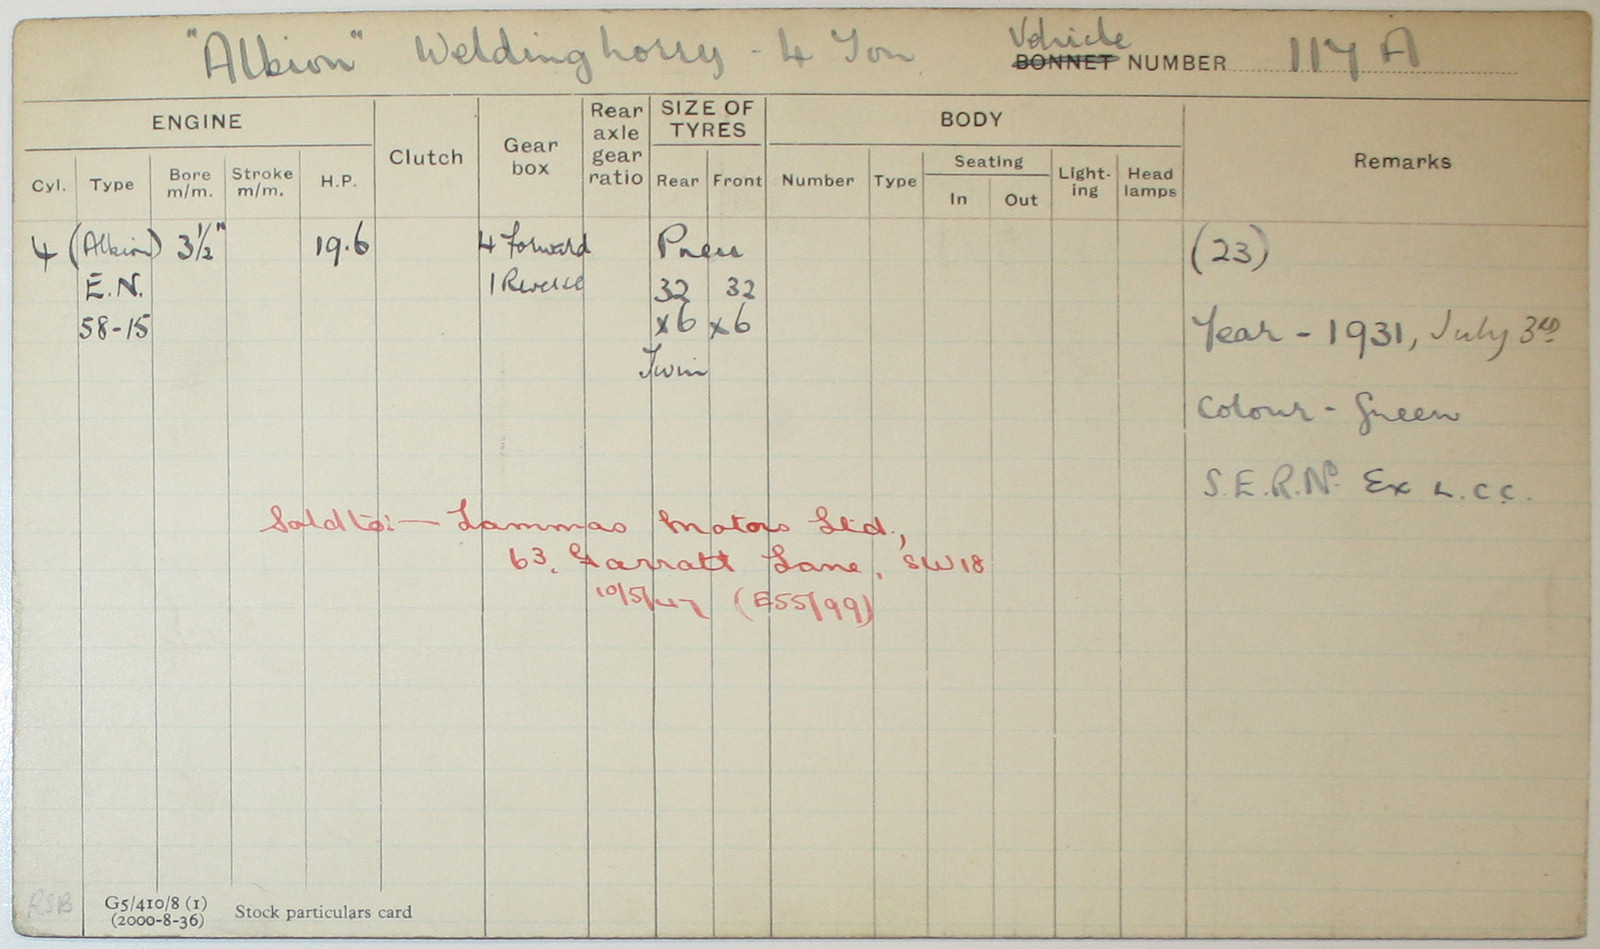 "Albion" Welding Lorry - 4 Ton Vehicle BONNET NUMBER 117 A
ENGINE
Clutch
Gear box
Rear axle gear ratio
SIZE OF TYRES
BODY
Remarks
Cyl. Type Bore m/m. Stroke m/m. H.P. Rear Front Number Type Seating In Out Light-ing Head lamps
4 (Albion) 3½" 19.6 4 Forward Pneu (23)
E.N. 1 Reverse 32 32
58-15 x6 x6 Year - 1931, July 3RD
Twin
Colour - Green
S.E.R.No. Ex L.C.C.
Sold to:- Lammas Motors Ltd.,
63, Garratt Lane, SW18
10/5/47 (E55/99)
RSB
G5/410/8 (1)
(2000-8-36)
Stock particulars card